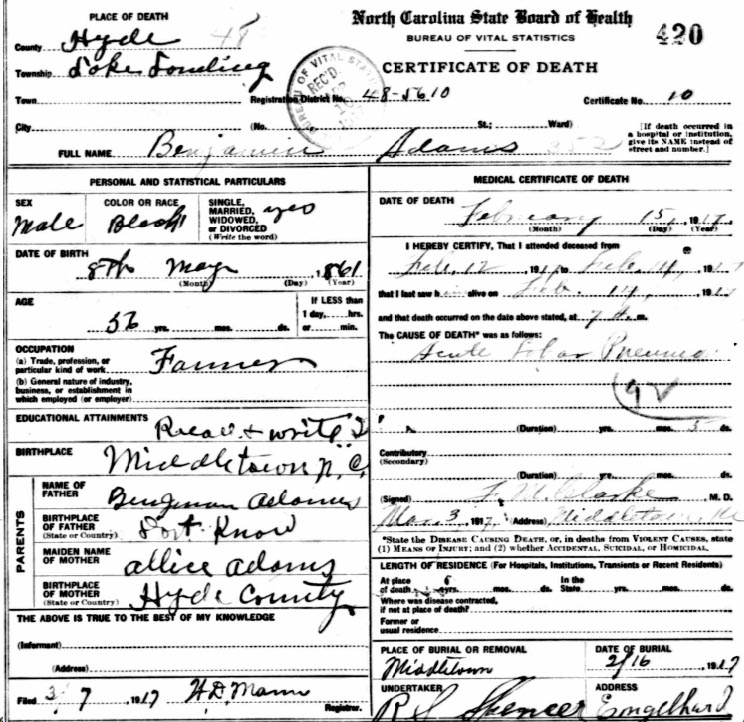 PLACE OF DEATH
North Carolina State Board of Health
BUREAU OF VITAL STATISTICS
420
CERTIFICATE OF DEATH
County Hyde 48
Township Lake Landing
Town
Registration District No. 48-5610 Certificate No. 10
BUREAU OF VITAL STATISTICS
REC'D
City (No. St.; Ward)
[If death occurred in
a hospital or institution,
give its NAME instead of
street and number.]
FULL NAME Benjamin Adams
PERSONAL AND STATISTICAL PARTICULARS
SEX
Male
COLOR OR RACE
Black
SINGLE,
MARRIED,
WIDOWED,
or DIVORCED
(Write the word)
yes
DATE OF BIRTH
8th May 1861
(Month) (Day) (Year)
AGE
56 yrs. mos. ds.
If LESS than
1 day, hrs.
or min.
OCCUPATION
(a) Trade, profession, or
particular kind of work Farmer
(b) General nature of industry,
business, or establishment in
which employed (or employer)
EDUCATIONAL ATTAINMENTS
& write
BIRTHPLACE
Middletown N.C.
PARENTS
NAME OF
FATHER
Bengman Adames
BIRTHPLACE
OF FATHER
(State or Country)
Dort Know
MAIDEN NAME
OF MOTHER
allice adams
BIRTHPLACE
OF MOTHER
(State or Country)
Hyde County
THE ABOVE IS TRUE TO THE BEST OF MY KNOWLEDGE
(Informant)
(Address)
Filed 3/7, 1917 H.D. Mann
Registrar.
MEDICAL CERTIFICATE OF DEATH
DATE OF DEATH
February 15, 1917.
(Month) (Day) (Year)
I HEREBY CERTIFY, That I attended deceased from
Feb. 12 1917 to Feb. 14, 1917
that I last saw him alive on Feb. 14, 1917
and that death occurred on the date above stated, at 7 A. m.
The CAUSE OF DEATH* was as follows:
Acute Lobar Pneumo
92
(Duration) yrs. mos. 5 ds.
Contributory
(Secondary)
(Duration) yrs. mos. ds.
(Signed) Clarke M. D.
Mar. 3, 1917, (Address) Middletown, NC
*State the DISEASE CAUSING DEATH, or, in deaths from VIOLENT CAUSES, state
(1) MEANS OF INJURY; and (2) whether ACCIDENTAL, SUICIDAL, or HOMICIDAL.
LENGTH OF RESIDENCE (For Hospitals, Institutions, Transients or Recent Residents)
At place
of death yrs. mos. ds.
In the
State yrs. mos. ds.
Where was disease contracted,
if not at place of death?
Former or
usual residence
PLACE OF BURIAL OR REMOVAL
Middletown
DATE OF BURIAL
2/16 1917
UNDERTAKER
R S Spencer
ADDRESS
Engelhard